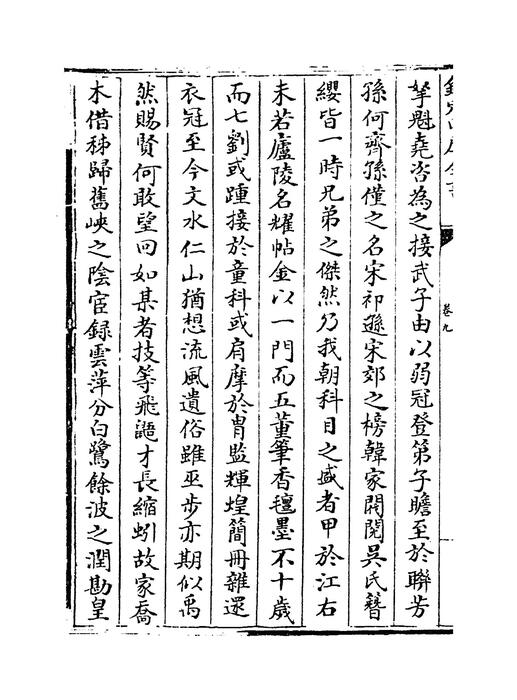 欽定四庫全書
卷九
拏魁堯咨為之接武子由以弱冠登第子瞻至於聯芳
孫何齊孫僅之名宋祁遜宋郊之榜韓家閥閱吳氏簪
纓皆一時兄弟之傑然乃我朝科目之盛者甲於江右
未若廬陵名耀帖金以一門而五董筆香氊墨不十歲
而七劉或踵接於童科或肩摩於胄監輝煌簡冊雜還
衣冠至今文水仁山猶想流風遺俗雖巫步亦期似禹
然賜賢何敢望回如某者技等飛鼯才長縮蚓故家喬
木借秭歸舊峽之陰宦錄雲萍分白鷺餘波之潤勘皇